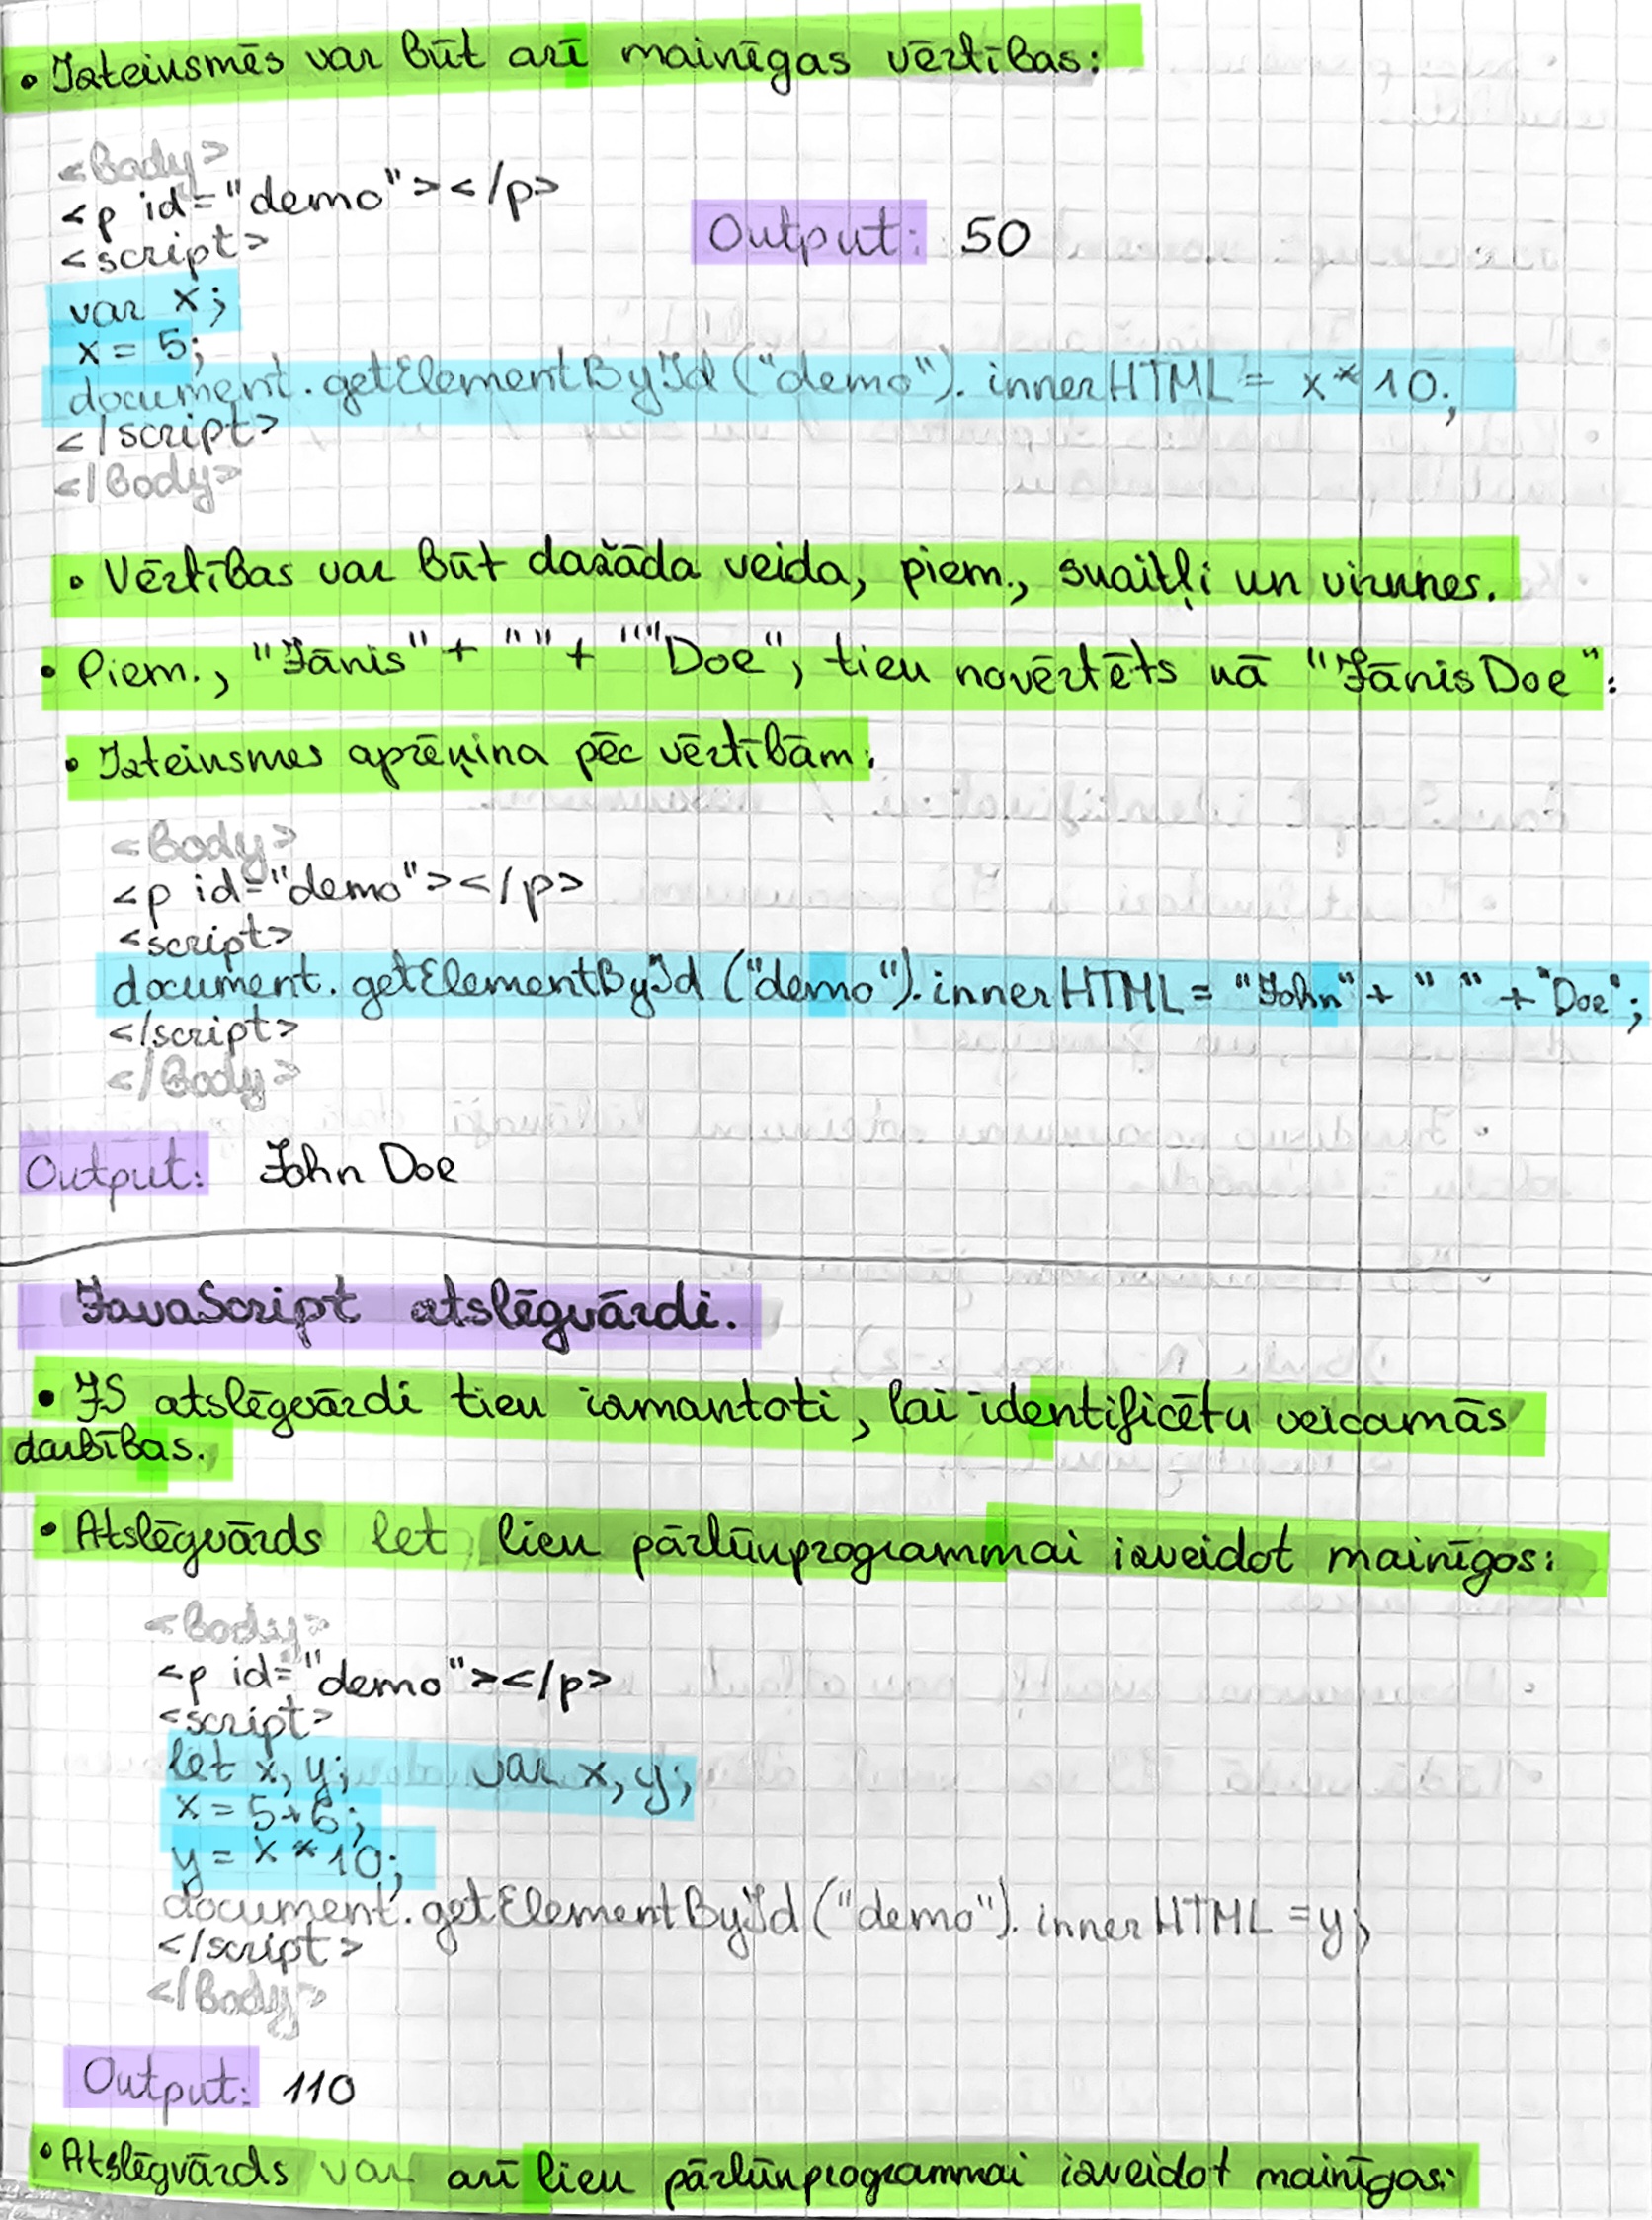 • Izteiksmēs var būt arī mainīgas vērtības:
<body>
<p id="demo"></p>
<script>
Output: 50
var x;
x = 5;
document.getElementById("demo").innerHTML = x * 10;
</script>
</body>
• Vērtības var būt dažāda veida, piem., skaitļi un virknes.
• Piem., "Jānis" + " " + """Doe", tiek novērtēts kā "Jānis Doe":
• Izteiksmes aprēķina pēc vērtībām:
<body>
<p id="demo"></p>
<script>
document.getElementById("demo").innerHTML = "John" + " " + "Doe";
</script>
</body>
Output: John Doe
JavaScript atslēgvārdi.
• JS atslēgvārdi tiek izmantoti, lai identificētu veicamās
darbības.
• Atslēgvārds let liek pārlūkprogrammai izveidot mainīgos:
<body>
<p id="demo"></p>
<script>
let x, y; var x, y;
x = 5+6;
y = x * 10;
document.getElementById("demo").innerHTML = y;
</script>
</body>
Output: 110
• Atslēgvārds var arī liek pārlūkprogrammai izveidot mainīgos: